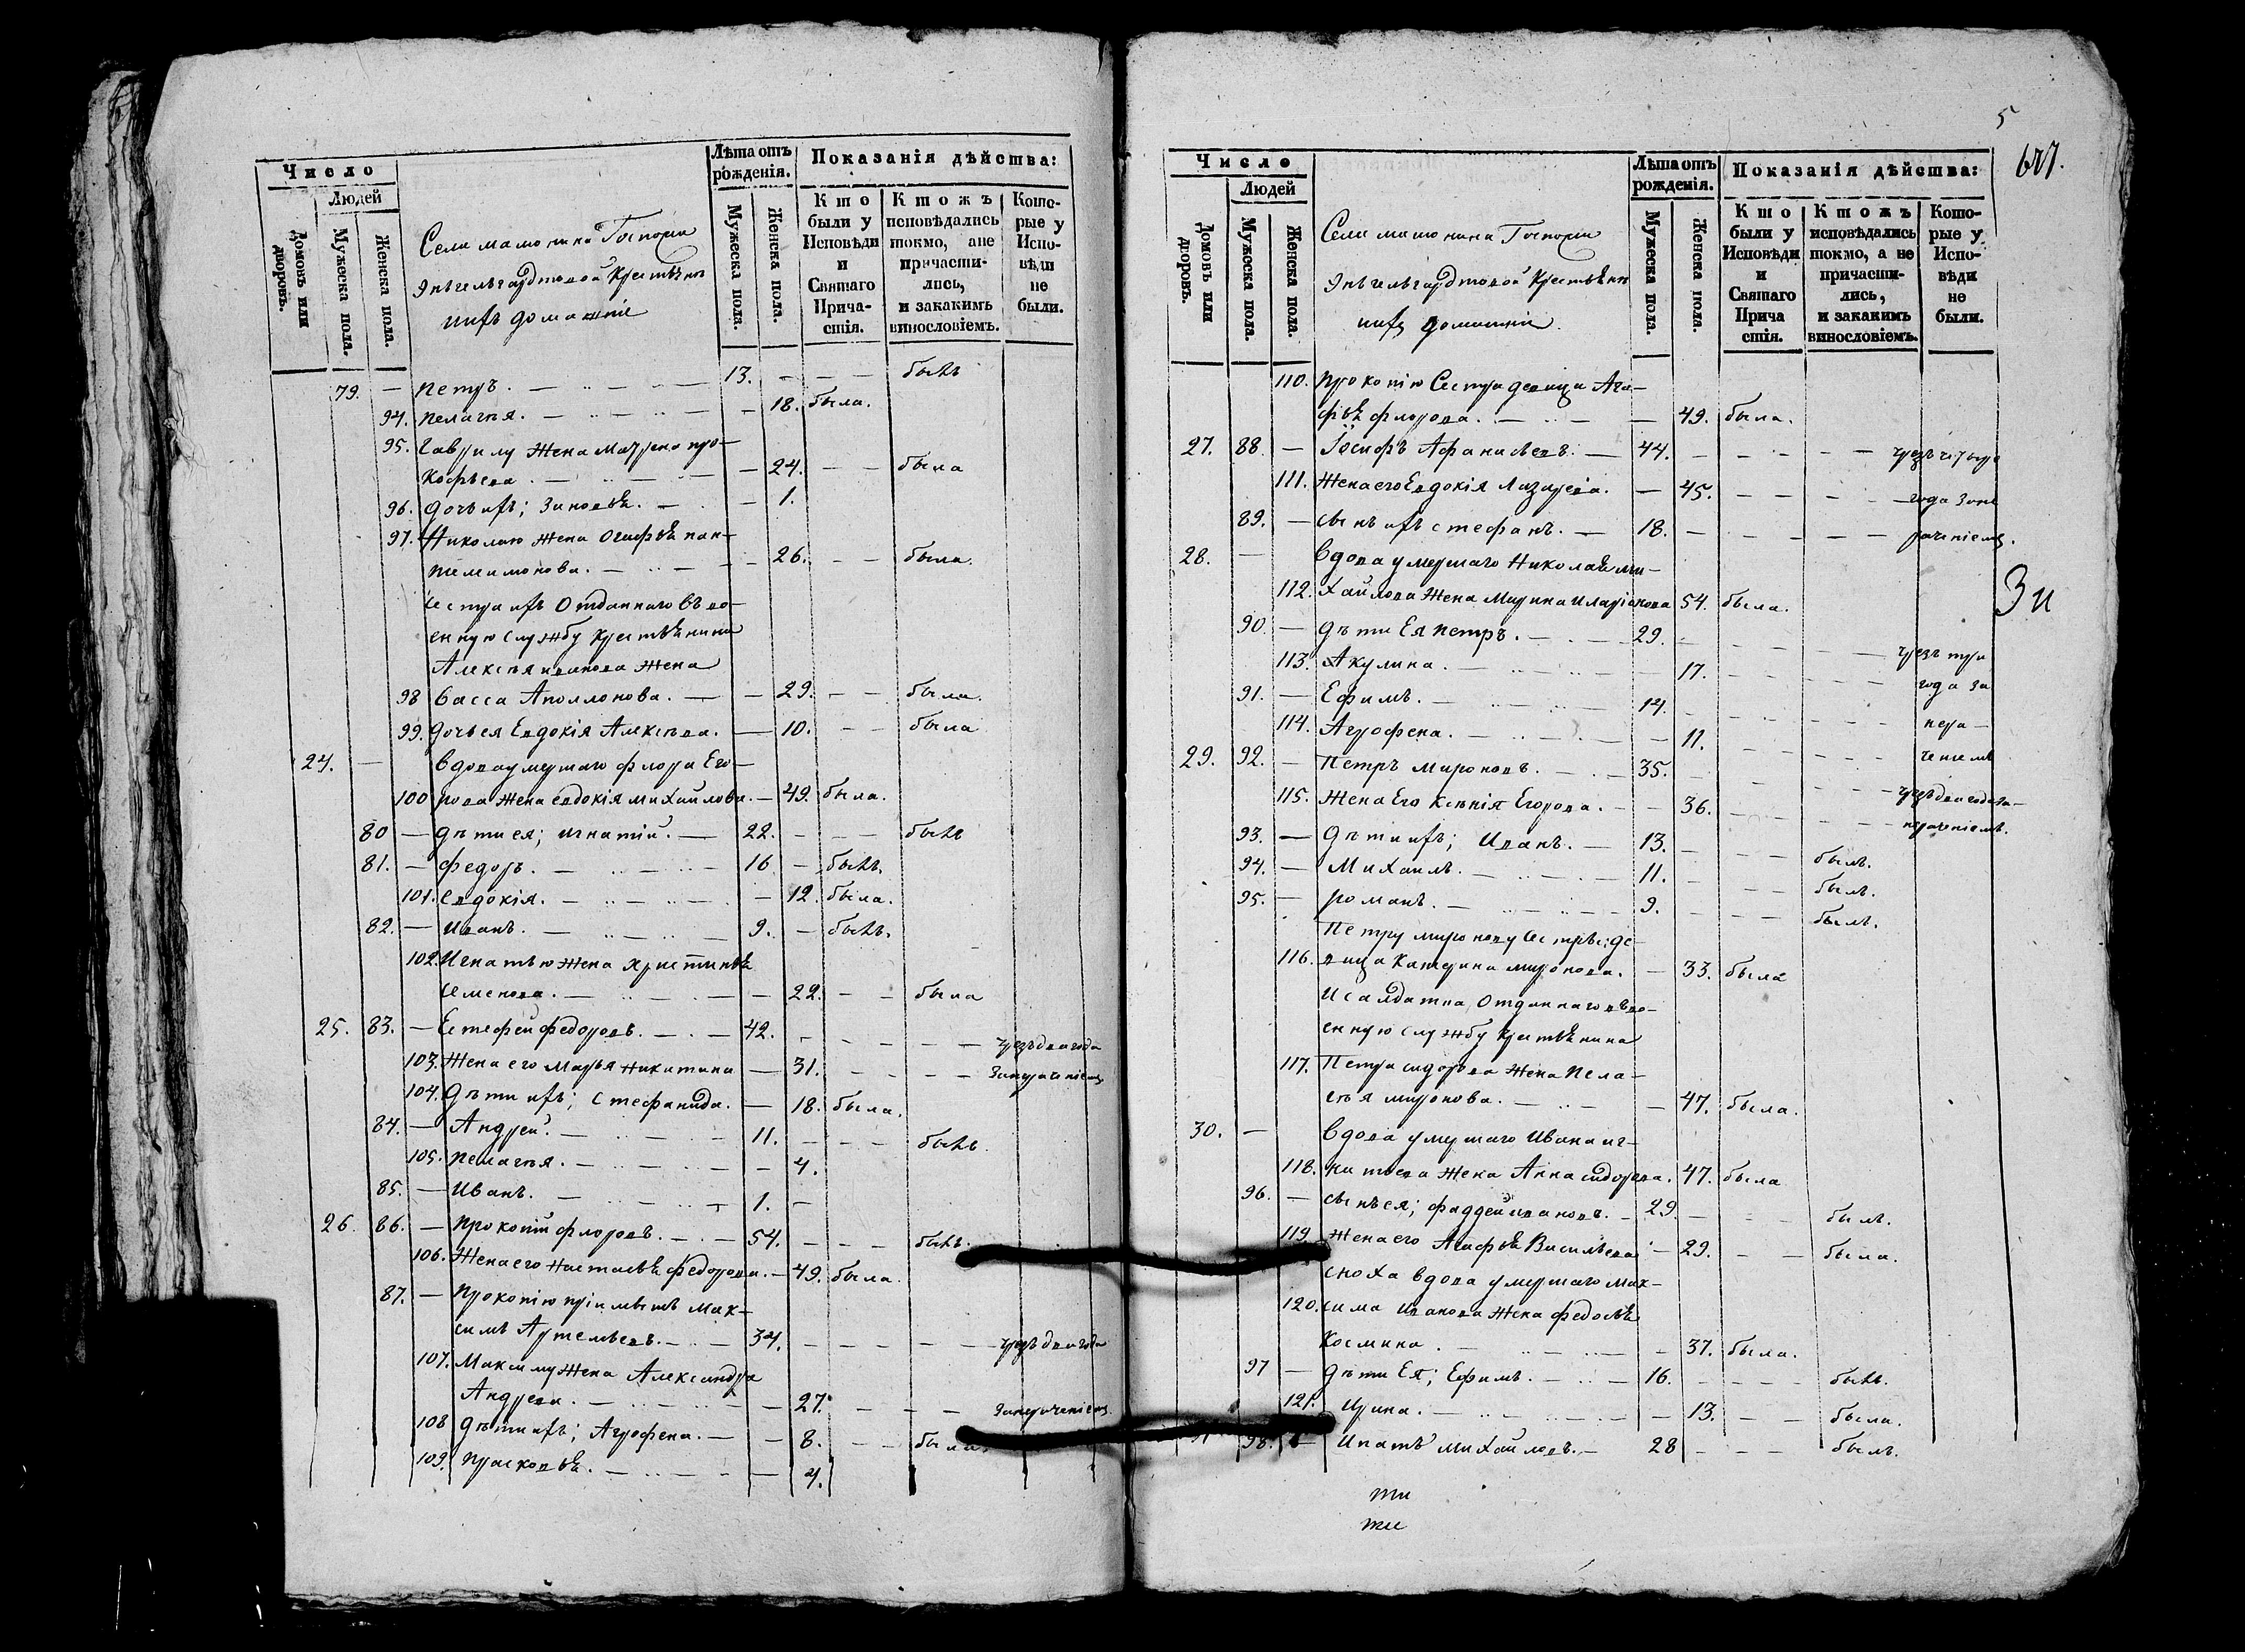 Число
Людей
Домовъ или дворовъ.
Мужеска пола.
Женска пола.
Лѣта отъ рожденія.
Мужеска пола.
Женска пола.
Показанія дѣйства:
Кто были у Исповѣди и Святаго Причастія.
Ктожъ исповѣдались токмо, а не причастились, и закакимъ винословіемъ.
Которые у Исповѣди не были.
79. — Петръ. — 13. — — — былъ
94. Пелагѣя. — — 18. была.
95. Гаврилу Жена Матрена про-
кофьева. — — 24. — — была
96. Дочь ихъ; Зиновья. — — 1.
97. Николаю Жена Огафья пан-
телимонова. — — 26. — — была.
Сестра ихъ Отданнаго въ во-
енную службу Крестьянина
Алексѣя иванова Жена
98 Васса Аполлонова. — — 29. — — была.
99. Дочь ея Евдокія Алексѣева. — 10. — — была
24. — Вдова умершаго флора Его-
100 рова Жена евдокія михайлова. — 49. была.
80 — Дѣти ея; игнатій. — 22. — — — былъ
81. — федоръ. — 16 — былъ.
101. Евдокія. — — 12. была.
82. — Иванъ. — 9. — былъ.
102. Игнатью Жена Христинья
Семенова. — — 22. — — была
25. 83. — Естефей федоровъ. — 42. — — — — чрезъ два года
103. Жена его Марья Никитина — 31. — — — — занераченіемъ
104. Дѣти ихъ; Стефанида. — 18. была.
84. — Андрей. — 11. — — — былъ.
105. Пелагѣя. — — 4.
85. — Иванъ. — 1. —
26. 86. — Прокопій флоровъ. — 54. — — — былъ.
106. Жена его Настасья федорова. — 49. была.
87. — Прокопію пріимышъ Мак-
симъ Артемьевъ. — 34. — — — — — чрезъ два года
107. Максиму Жена Александра
Андреева. — — 27. — — — занераченіемъ
108 Дѣти ихъ; Агрофена. — — 8. — — была.
109. Прасковья. — — 4.
5
Число
Людей
Домовъ или дворовъ.
Мужеска пола.
Женска пола.
Лѣта отъ рожденія.
Мужеска пола.
Женска пола.
Показанія дѣйства:
Кто были у Исповѣди и Святаго Причастія.
Ктожъ исповѣдались токмо, а не причастились, и закакимъ винословіемъ.
Которые у Исповѣди не были.
110. Прокопію Сестра девица Ага-
фья флорова. — — 49. была.
27. 88. — Іосифъ Афанасьевъ. — 44. — — — — чрезъ четыре
111. Жена его Евдокія Лазарева. — 45. — — — — года зане
89. — Сынъ ихъ стефанъ. — 18. — — — — раченіемъ.
28. — Вдова умершаго Николая ми-
112. хайлова Жена Марина иларіонова 54. была.
90. — Дѣти Ея Петръ. — 29. — — — — чрезъ три
113. Акулина. — — 17. — — — — года за
91. — Ефимъ. — 14. — — — — нера-
114. Агрофена. — — 11. — — — ченіемъ
29. 92. — Петръ Мироновъ. — 35. — — — — чрезъ два года за-
115. Жена Его Ксенія Егорова. — — 36. — — — — нераченіемъ.
93. — Дѣти ихъ; Иванъ. — 13. — — — былъ.
94. — Михаилъ. — 11. — — — былъ.
95. — романъ. — 9. — — — былъ.
Петру миронову Сестра; де-
116. вица Катерина миронова. — 33. была
И салдатка Отданнаго въ во-
енную службу Крестьянина
117. Петра сидорова Жена Пела-
гѣя миронова. — — 47. была.
30. — Вдова умершаго Ивана иг-
118. натьева Жена Анна сидорова. 47. была
96. — Сынъ ея; фаддей ивановъ. — 29. — — — былъ.
119 Жена его Агафья Васильева — 29. — — была.
Сноха вдова умершаго мак-
120. сима иванова Жена федосья
Космина. — — 37. была.
97 — Дѣти Ея; Ефимъ. — 16. — — — былъ.
121. Ирина. — — 13. — — была.
98. — Ипатъ михайловъ. — 28 — — — былъ.